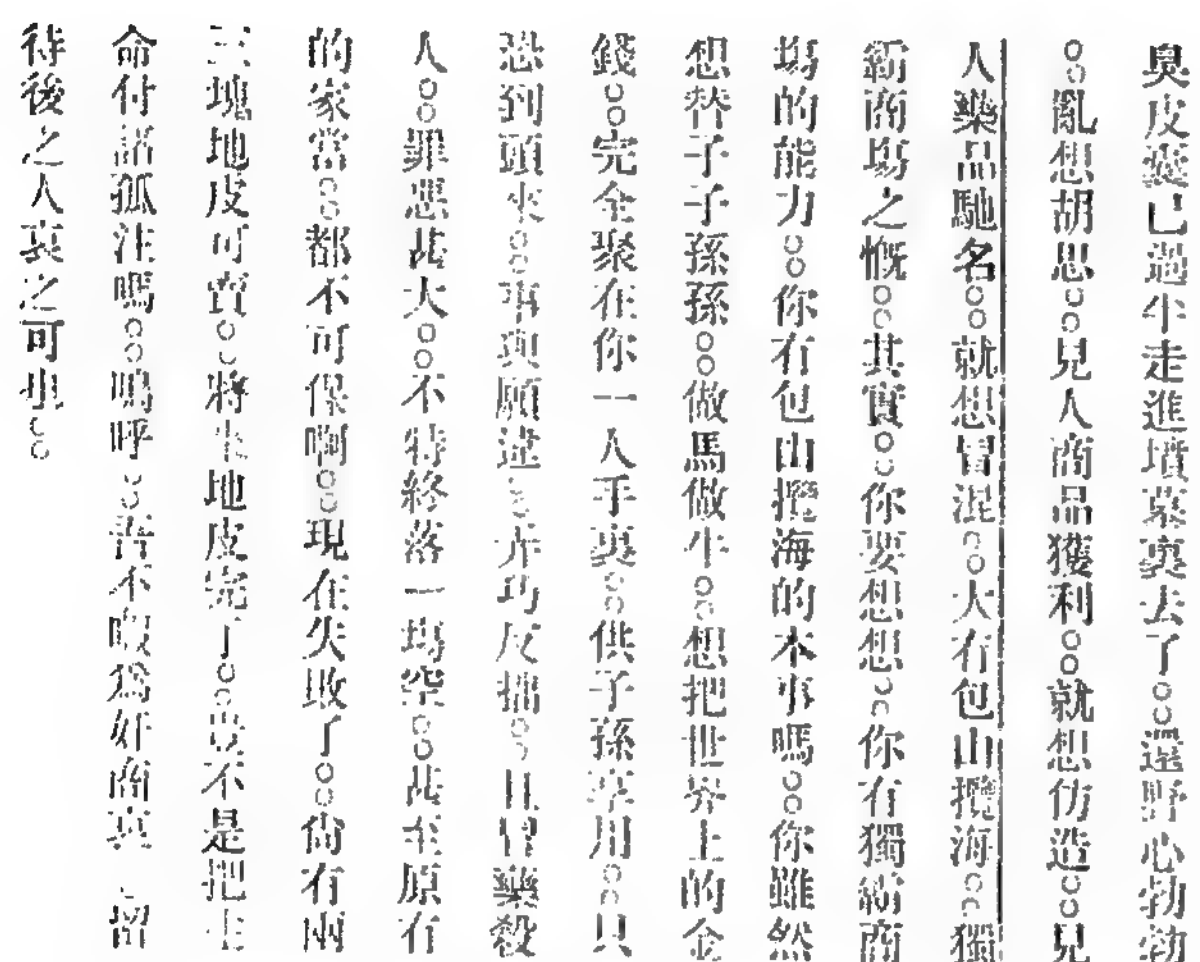 臭皮囊已過半走進墳墓裏去了。。還野心勃勃
。。亂想胡思。。見人商品獲利。。就想仿造。。見
人藥品馳名。。就想冒混。。大有包山攬海。。獨
霸商塲之慨。。其實。。你要想想。。你有獨霸商
塲的能力。。你有包山攬海的本事嗎。。你雖然
想替子子孫孫。。做馬做牛。。想把世界上的金
錢。。完全聚在你一人手裏。。供子孫享用。。只
恐到頭來。。事與願違。。弄巧反拙。。且冒藥殺
人。。罪惡甚大。。不特終落一塲空。。甚至原有
的家當。。都不可保啊。。現在失敗了。。尙有兩
三塊地皮可賣。。將來地皮完了。。豈不是把生
命付諸孤注嗎。。嗚呼。。吾不暇爲奸商哀 留
待後之人哀之可也。。